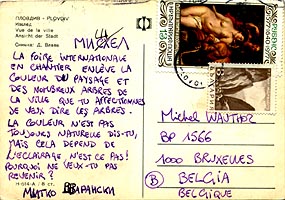 ПЛОВДИВ - PLOVDIV
Изглед
Vue de la ville
Ansicht der Stadt
МИШЕЛ
LA FOIRE INTERNATIONALE
EN CHANTIER ENLÈVE LA
COULEUR DU PAYSAGE ET
DES NOMBREUX ARBRES DE
LA VILLE QUE TU AFFECTIONNES
JE VEUX DIRE LES ARBRES.
LA COULEUR N'EST PAS
TOUJOURS NATURELLE DIS-TU,
MAIS CELA DEPEND DE
L'ECLAIRAGE, N'EST CE PAS!
POURQUOI NE VEUX-TU PAS
REVENIR?
МИТКО
Michel WAUTHOZ
BP 1566
1000 BRUXELLES
B BELGIA
BELGIQUE